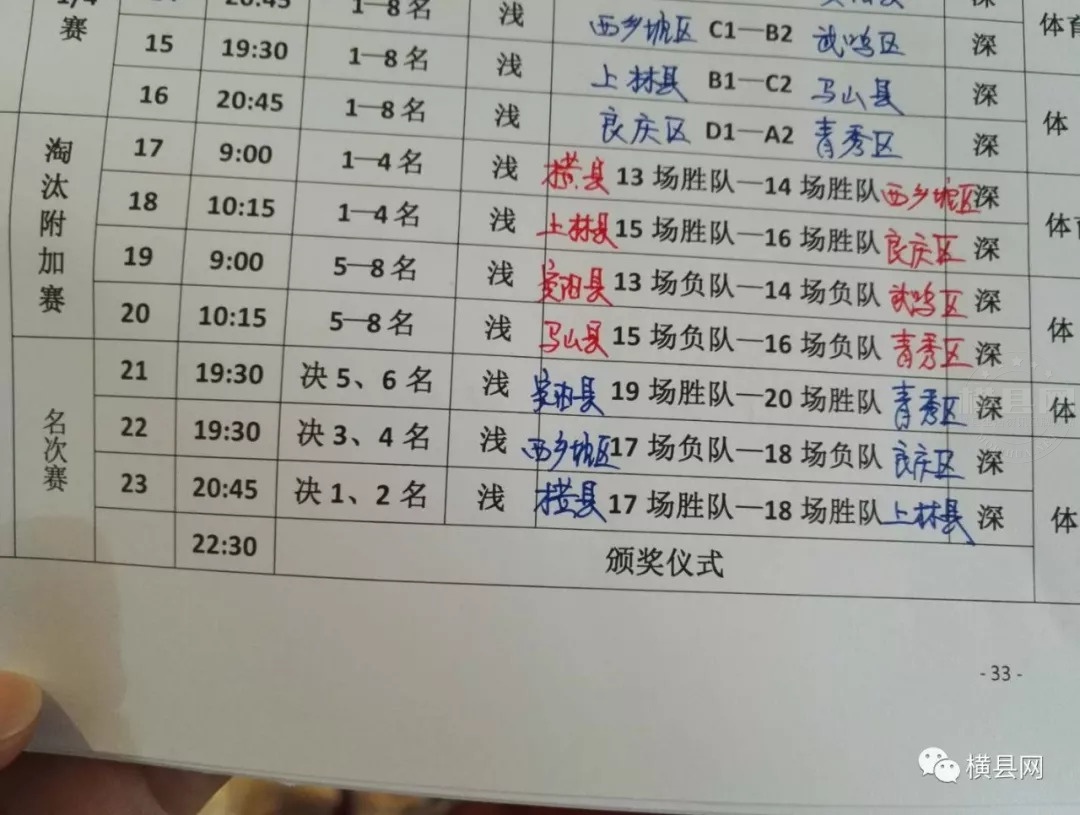 1/4
赛
20:45 1—8名 浅 西乡塘区 C1—B2 武鸣区 深 体育
15 19:30 1—8名 浅 上林县 B1—C2 马山县 深
16 20:45 1—8名 浅 良庆区 D1—A2 青秀区 深 体
淘汰附加赛
17 9:00 1—4名 浅 横县 13 场胜队—14 场胜队 西乡塘区 深
18 10:15 1—4名 浅 上林县 15 场胜队—16 场胜队 良庆区 深 体育
19 9:00 5—8名 浅 宾阳县 13 场负队—14 场负队 武鸣区 深
20 10:15 5—8名 浅 马山县 15 场负队—16 场负队 青秀区 深 体
名次赛
21 19:30 决 5、6 名 浅 宾阳县 19 场胜队—20 场胜队 青秀区 深 体
22 19:30 决 3、4 名 浅 西乡塘区 17 场负队—18 场负队 良庆区 深
23 20:45 决 1、2 名 浅 横县 17 场胜队—18 场胜队 上林县 深 体
22:30 颁奖仪式
- 33 -
横县网